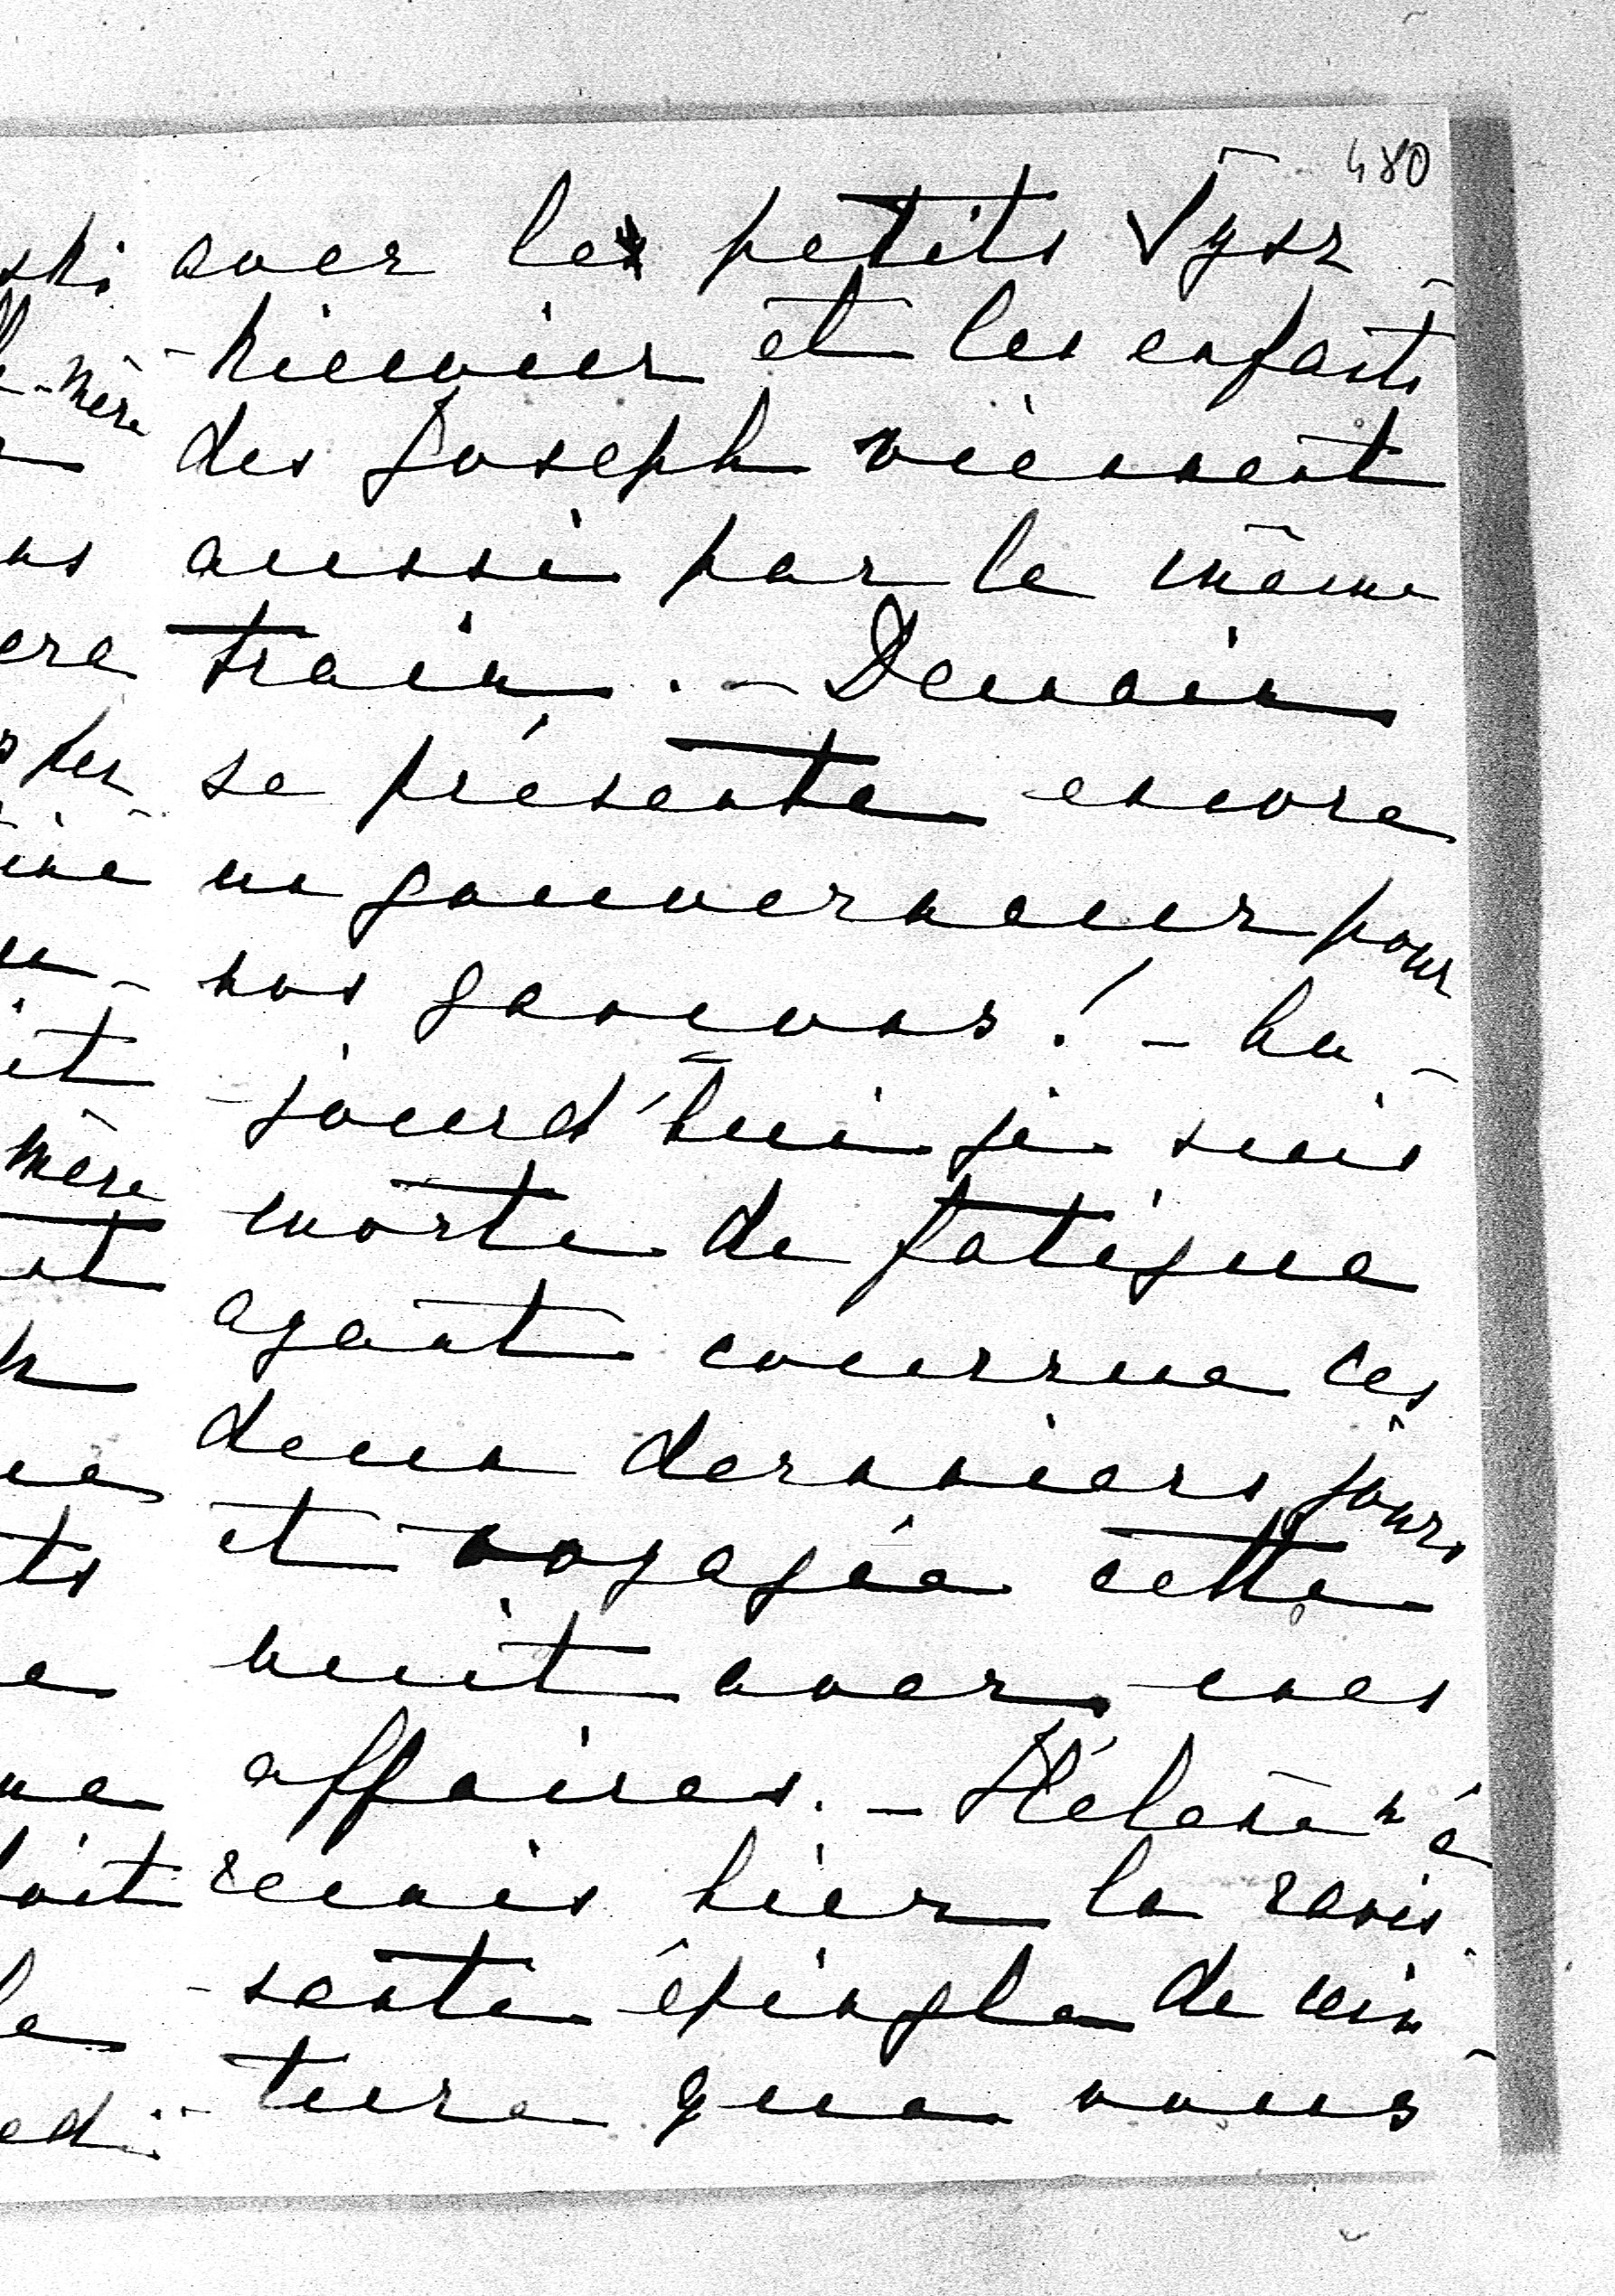 480
avec les petits Tysz-
-kiewicz et les enfants
des Joseph viennent
aussi par le même
train. - Demain
se présente encore
un gouverneur pour
nos garçons! - Au-
-jourd'hui je suis
morte de fatigue
ayant courrue ces
deux derniers jours
et voyagée cette
nuit avec mes
affaires. - Hélène m'a
remis hier la ravis-
-sante épingle de cein-
-ture que vous